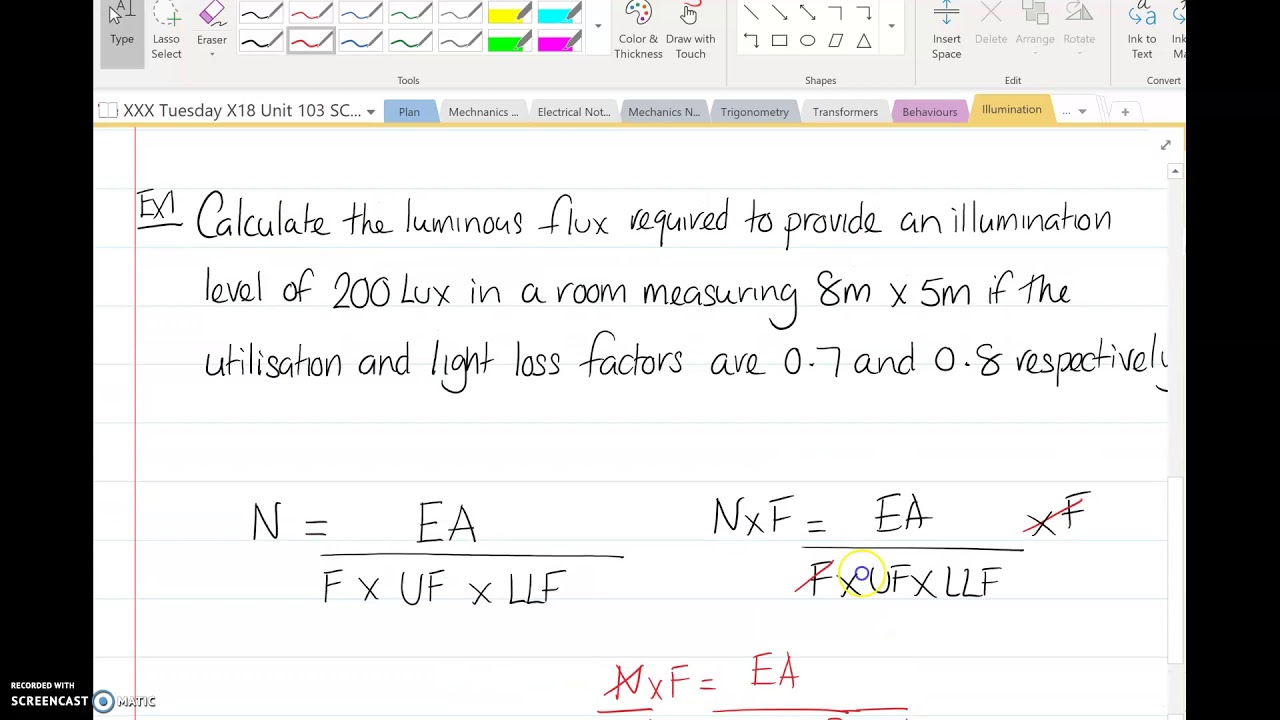 Type
Lasso Select
Eraser
Color & Thickness
Draw with Touch
Insert Space
Delete
Arrange
Rotate
Ink to Text
Tools
Shapes
Edit
Convert
XXX Tuesday X18 Unit 103 SC...
Plan
Mechnanics ...
Electrical Not...
Mechanics N...
Trigonometry
Transformers
Behaviours
Illumination
...
Ex1 Calculate the luminous flux required to provide an illumination
level of 200 Lux in a room measuring 8m x 5m if the
utilisation and light loss factors are 0.7 and 0.8 respectively
N = EA
F x UF x LLF
N x F = EA x F
F x UF x LLF
N x F = EA
RECORDED WITH
SCREENCAST MATIC